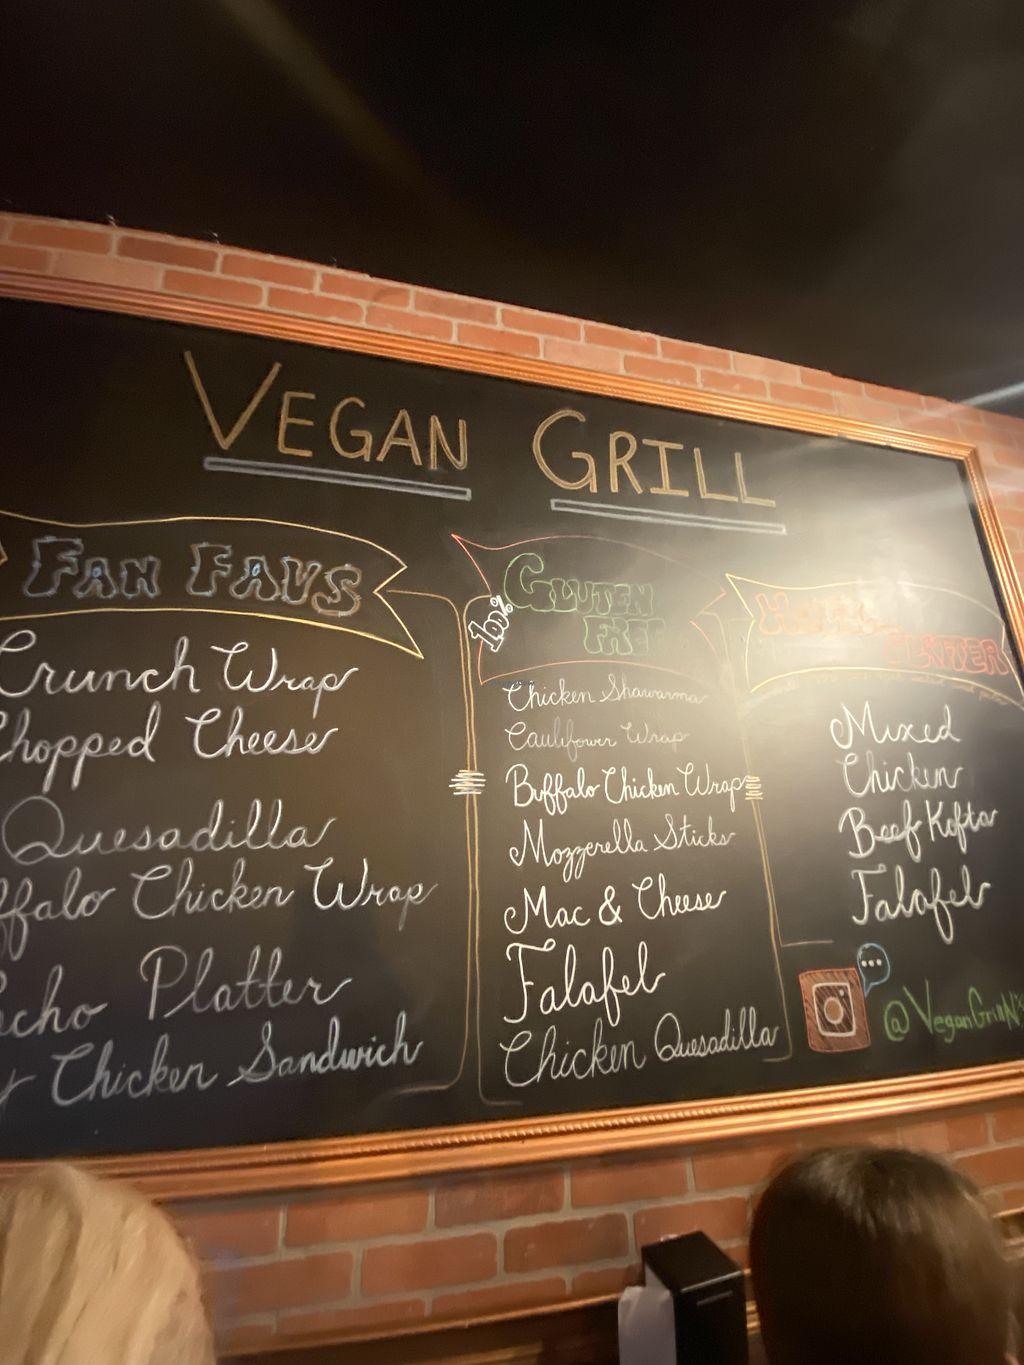 VEGAN GRILL
FAN FAVS
Crunch Wrap
Chopped Cheese
Quesadilla
ffalo Chicken Wrap
cho Platter
y Chicken Sandwich
100% GLUTEN
FREE
Chicken Shawarma
Cauliflower Wrap
Buffalo Chicken Wrap
Mozzerella Sticks
Mac & Cheese
Falafel
Chicken Quesadilla
PLATTER
Mixed
Chicken
Beef Kofta
Falafel
@VeganGrillN